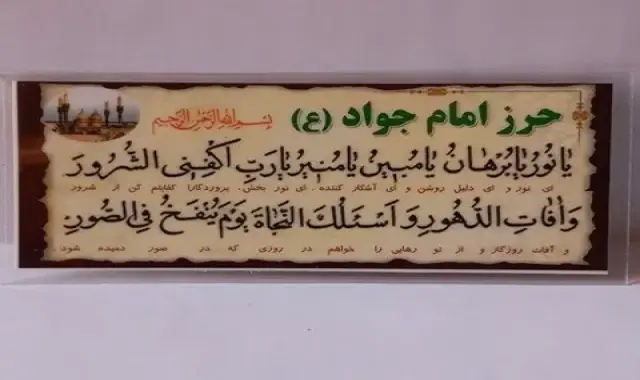 حرز امام جواد (ع)
بسم الله الرحمن الرحیم
یا نُورُ یا بُرْهانُ یا مُبینُ یا مُنیرُ یا رَبِّ اکْفِنِی الشُّرُورَ
ای نور و ای دلیل روشن و ای آشکار کننده . ای نور بخش. پروردگارا کفایتم کن از شرور
وَ اٰفاتِ الدُّهُورِ وَ اَسْئَلُكَ النَّجاةَ یَوْمَ یُنْفَخُ فِی الصُّورِ.
و آفات روزگار و از تو رهایی را خواهم در روزی که در صور دمیده شود.